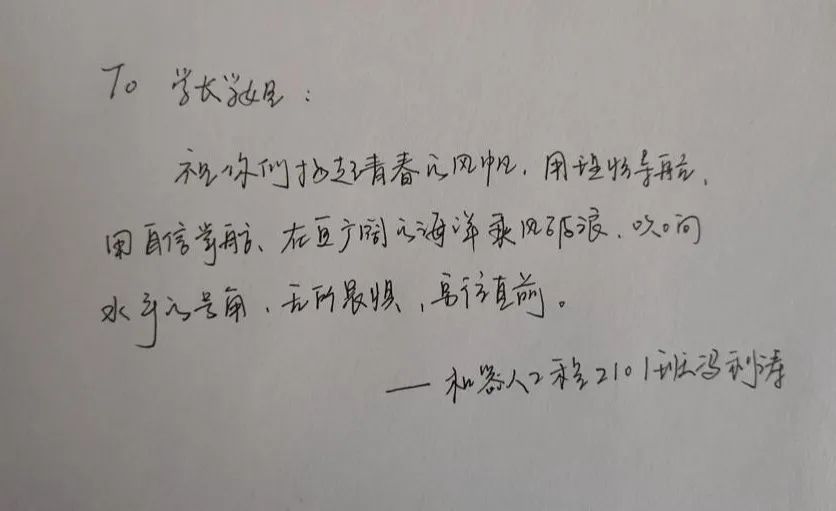 To 学长学姐：
祝你们扬起青春的风帆，用理想导航，
用自信掌舵、在宽广阔的海洋乘风破浪、吹响
水手的号角，无所畏惧，勇往直前。
— 机器人工程2101班冯利涛